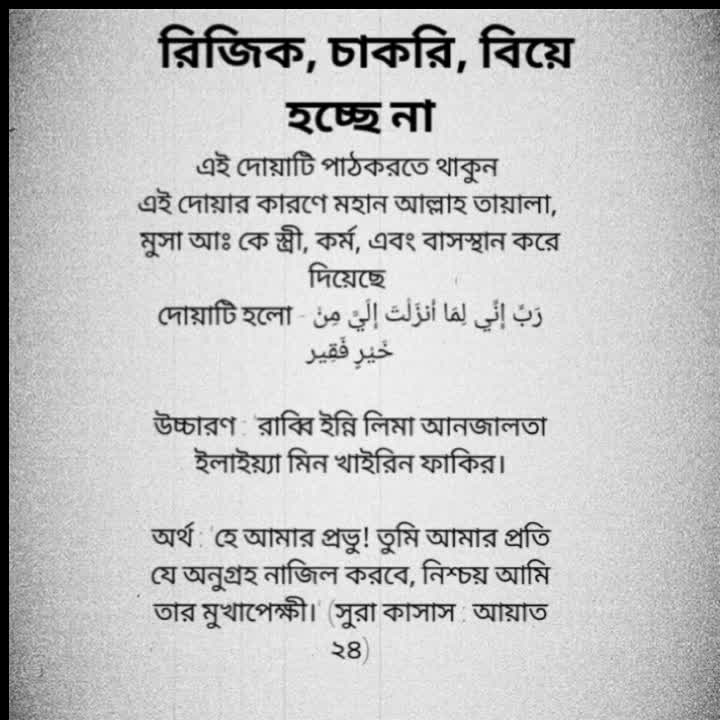 রিজিক, চাকরি, বিয়ে
হচ্ছে না
এই দোয়াটি পাঠকরতে থাকুন
এই দোয়ার কারণে মহান আল্লাহ তায়ালা,
মুসা আঃ কে স্ত্রী, কর্ম, এবং বাসস্থান করে
দিয়েছে
দোয়াটি হলো - رَبِّ إِنِّي لِمَا أَنزَلْتَ إِلَيَّ مِنْ
خَيْرٍ فَقِير
উচ্চারণ : 'রাব্বি ইন্নি লিমা আনজালতা
ইলাইয়্যা মিন খাইরিন ফাকির।
অর্থ : 'হে আমার প্রভু! তুমি আমার প্রতি
যে অনুগ্রহ নাজিল করবে, নিশ্চয় আমি
তার মুখাপেক্ষী।' (সুরা কাসাস : আয়াত
২৪)